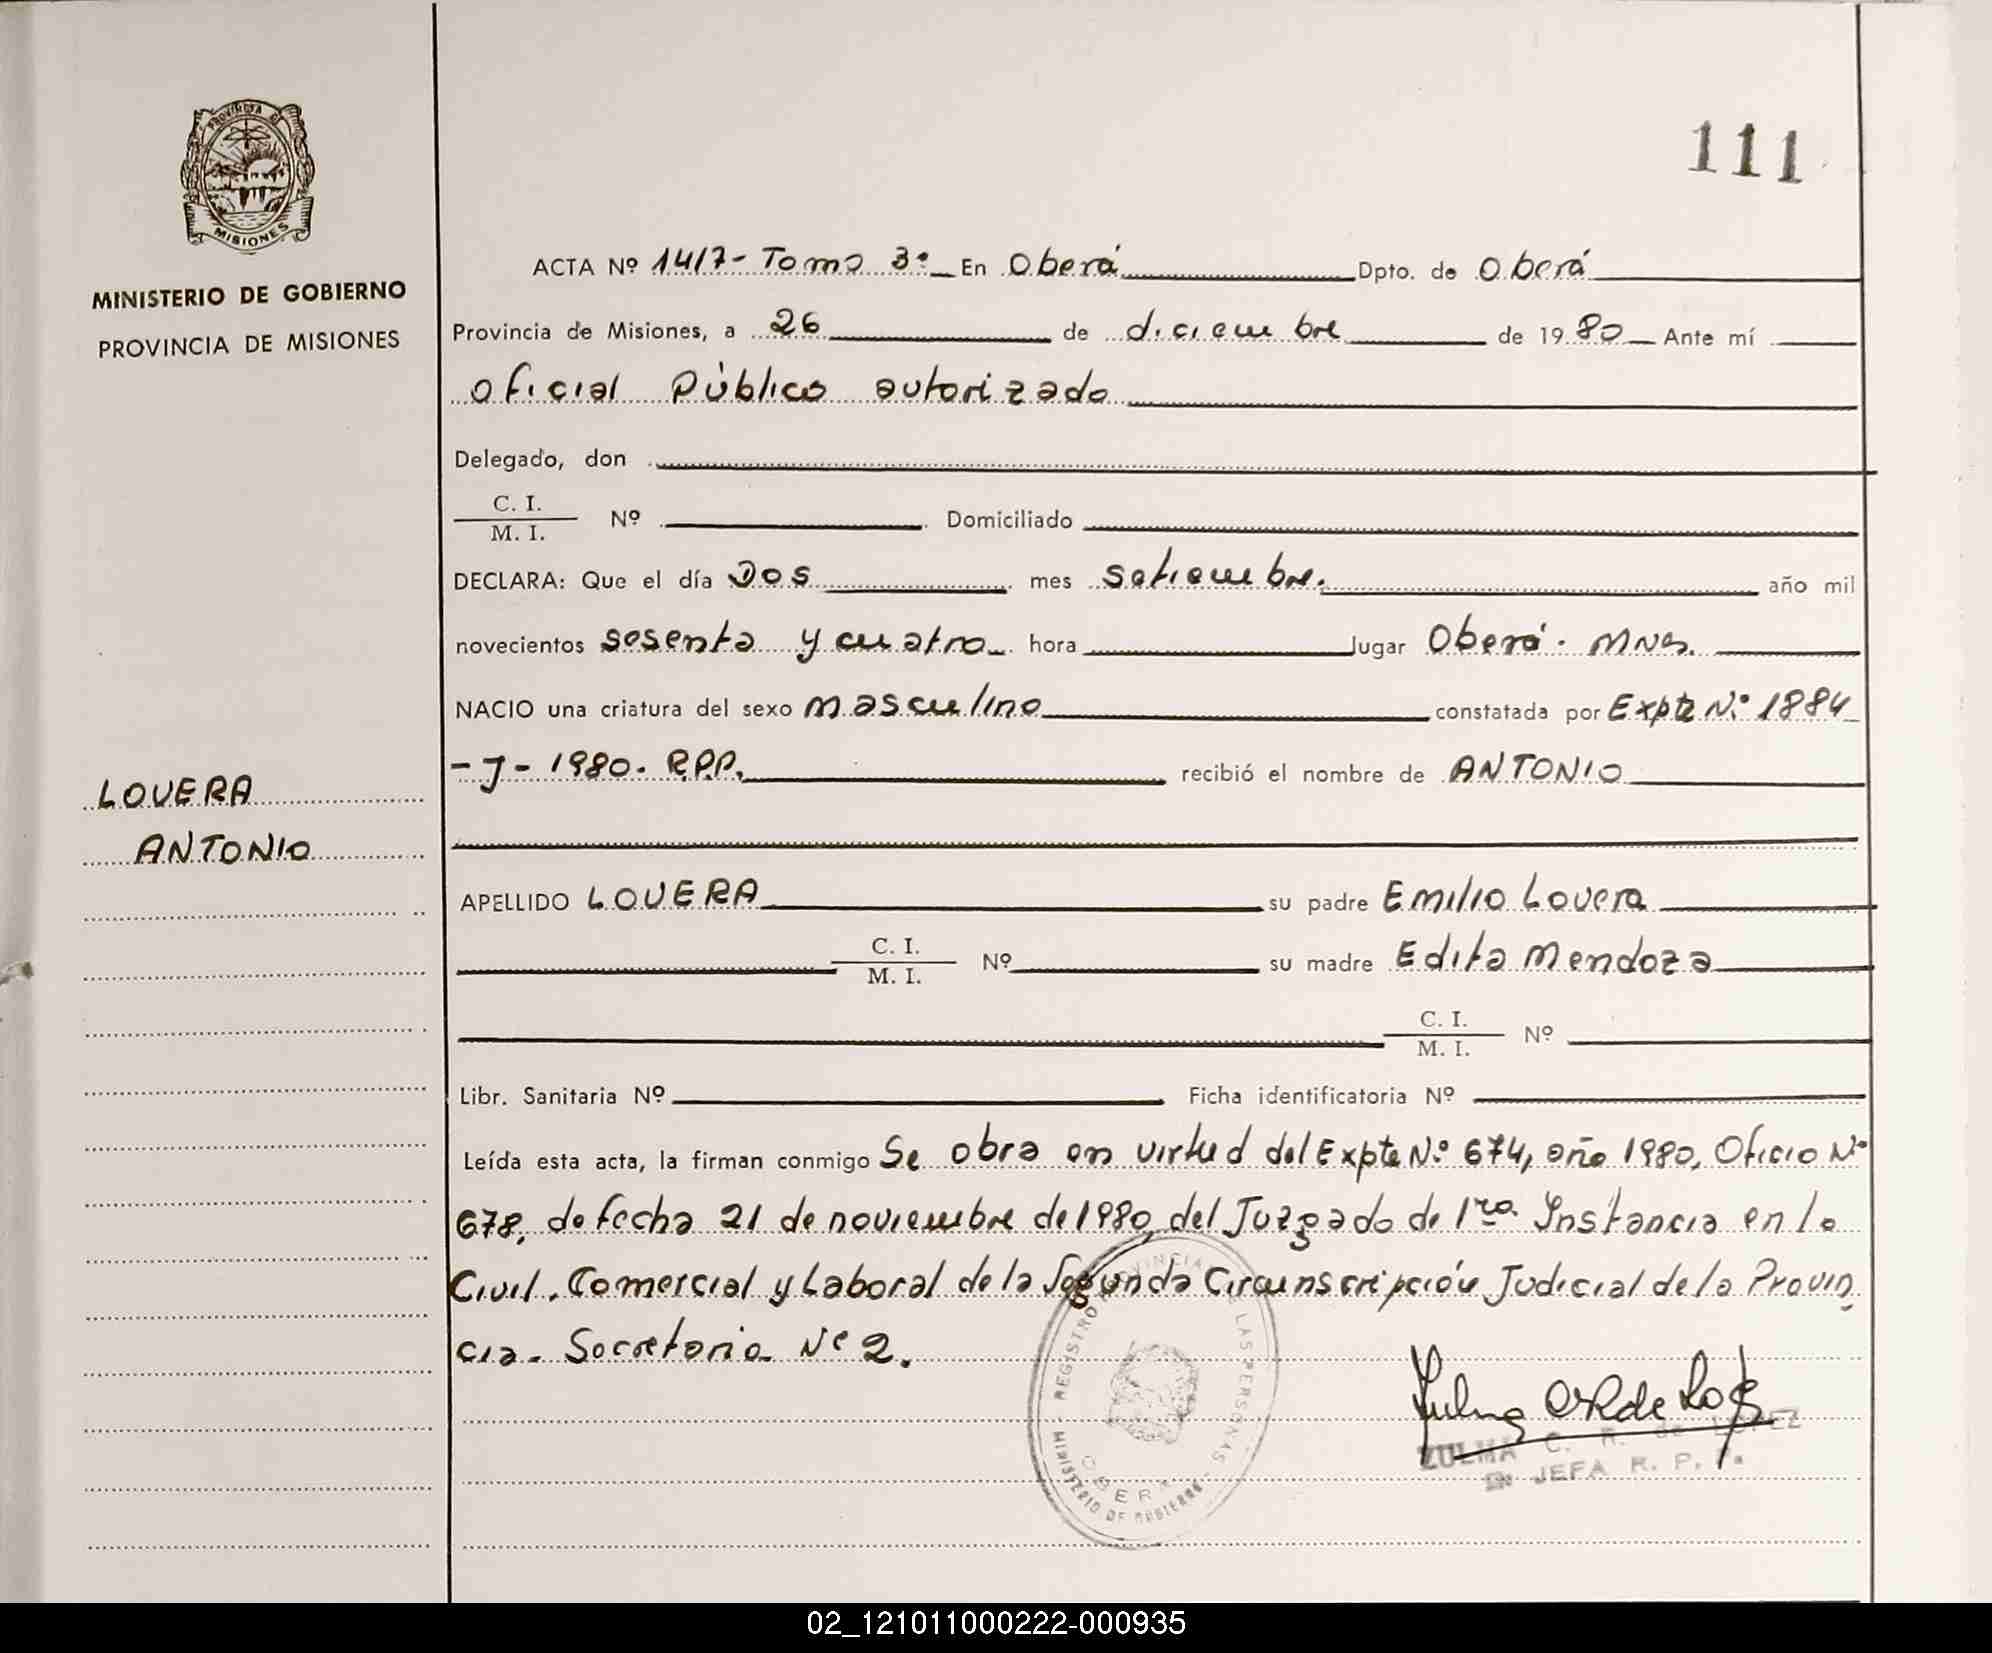 PROVINCIA DE
MISIONES
MINISTERIO DE GOBIERNO
PROVINCIA DE MISIONES
LOVERA
ANTONIO
111
ACTA Nº 1417 - Tomo 3º En Oberá Dpto. de Oberá
Provincia de Misiones, a 26 de diciembre de 1980 Ante mí
Oficial Público autorizado
Delegado, don
C. I.
M. I. Nº Domiciliado
DECLARA: Que el día Dos mes Setiembre. año mil
novecientos sesenta y cuatro hora lugar Oberá - Mnes.
NACIO una criatura del sexo masculino constatada por Expte Nº 1884
- J - 1980. R.P.P. recibió el nombre de ANTONIO
APELLIDO LOVERA su padre Emilio Lovera
C. I.
M. I. Nº su madre Edita Mendoza
C. I.
M. I. Nº
Libr. Sanitaria Nº Ficha identificatoria Nº
Leída esta acta, la firman conmigo Se obra en virtud del Expte Nº 674, año 1980, Oficio Nº
678, de fecha 21 de noviembre de 1980, del Juzgado de 1ra. Instancia en lo
Civil, Comercial y Laboral de la Segunda Circunscripción Judicial de la Provin
cia - Secretaria Nº 2.
REGISTRO PROVINCIAL DE LAS PERSONAS
MINISTERIO DE GOBIERNO
OBERA
ZULMA C. R. de LOPEZ
JEFA R. P. P.
02_121011000222-000935